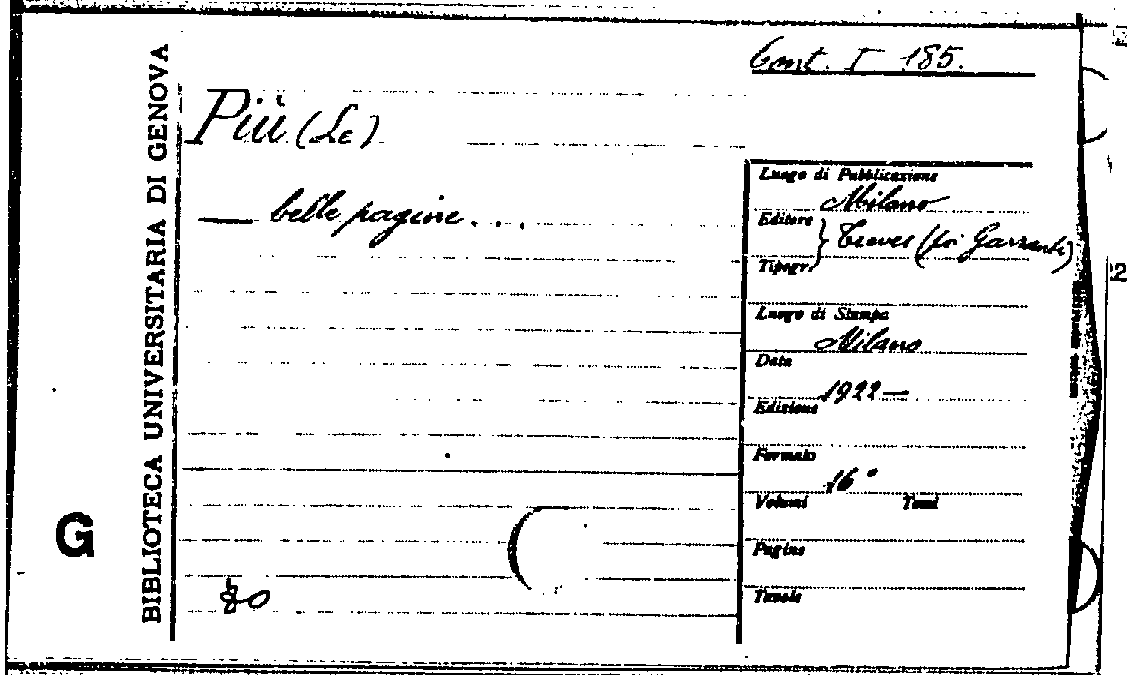 Cont. I 185.
BIBLIOTECA UNIVERSITARIA DI GENOVA
G
Più (Le)
— belle pagine...
Luogo di Pubblicazione
Milano
Editore
Tipogr.
} Treves (poi Garzanti)
Luogo di Stampa
Milano
Data
1922—
Edizione
Formato
16°
Volumi Tomi
Pagine
Tavole
80
2